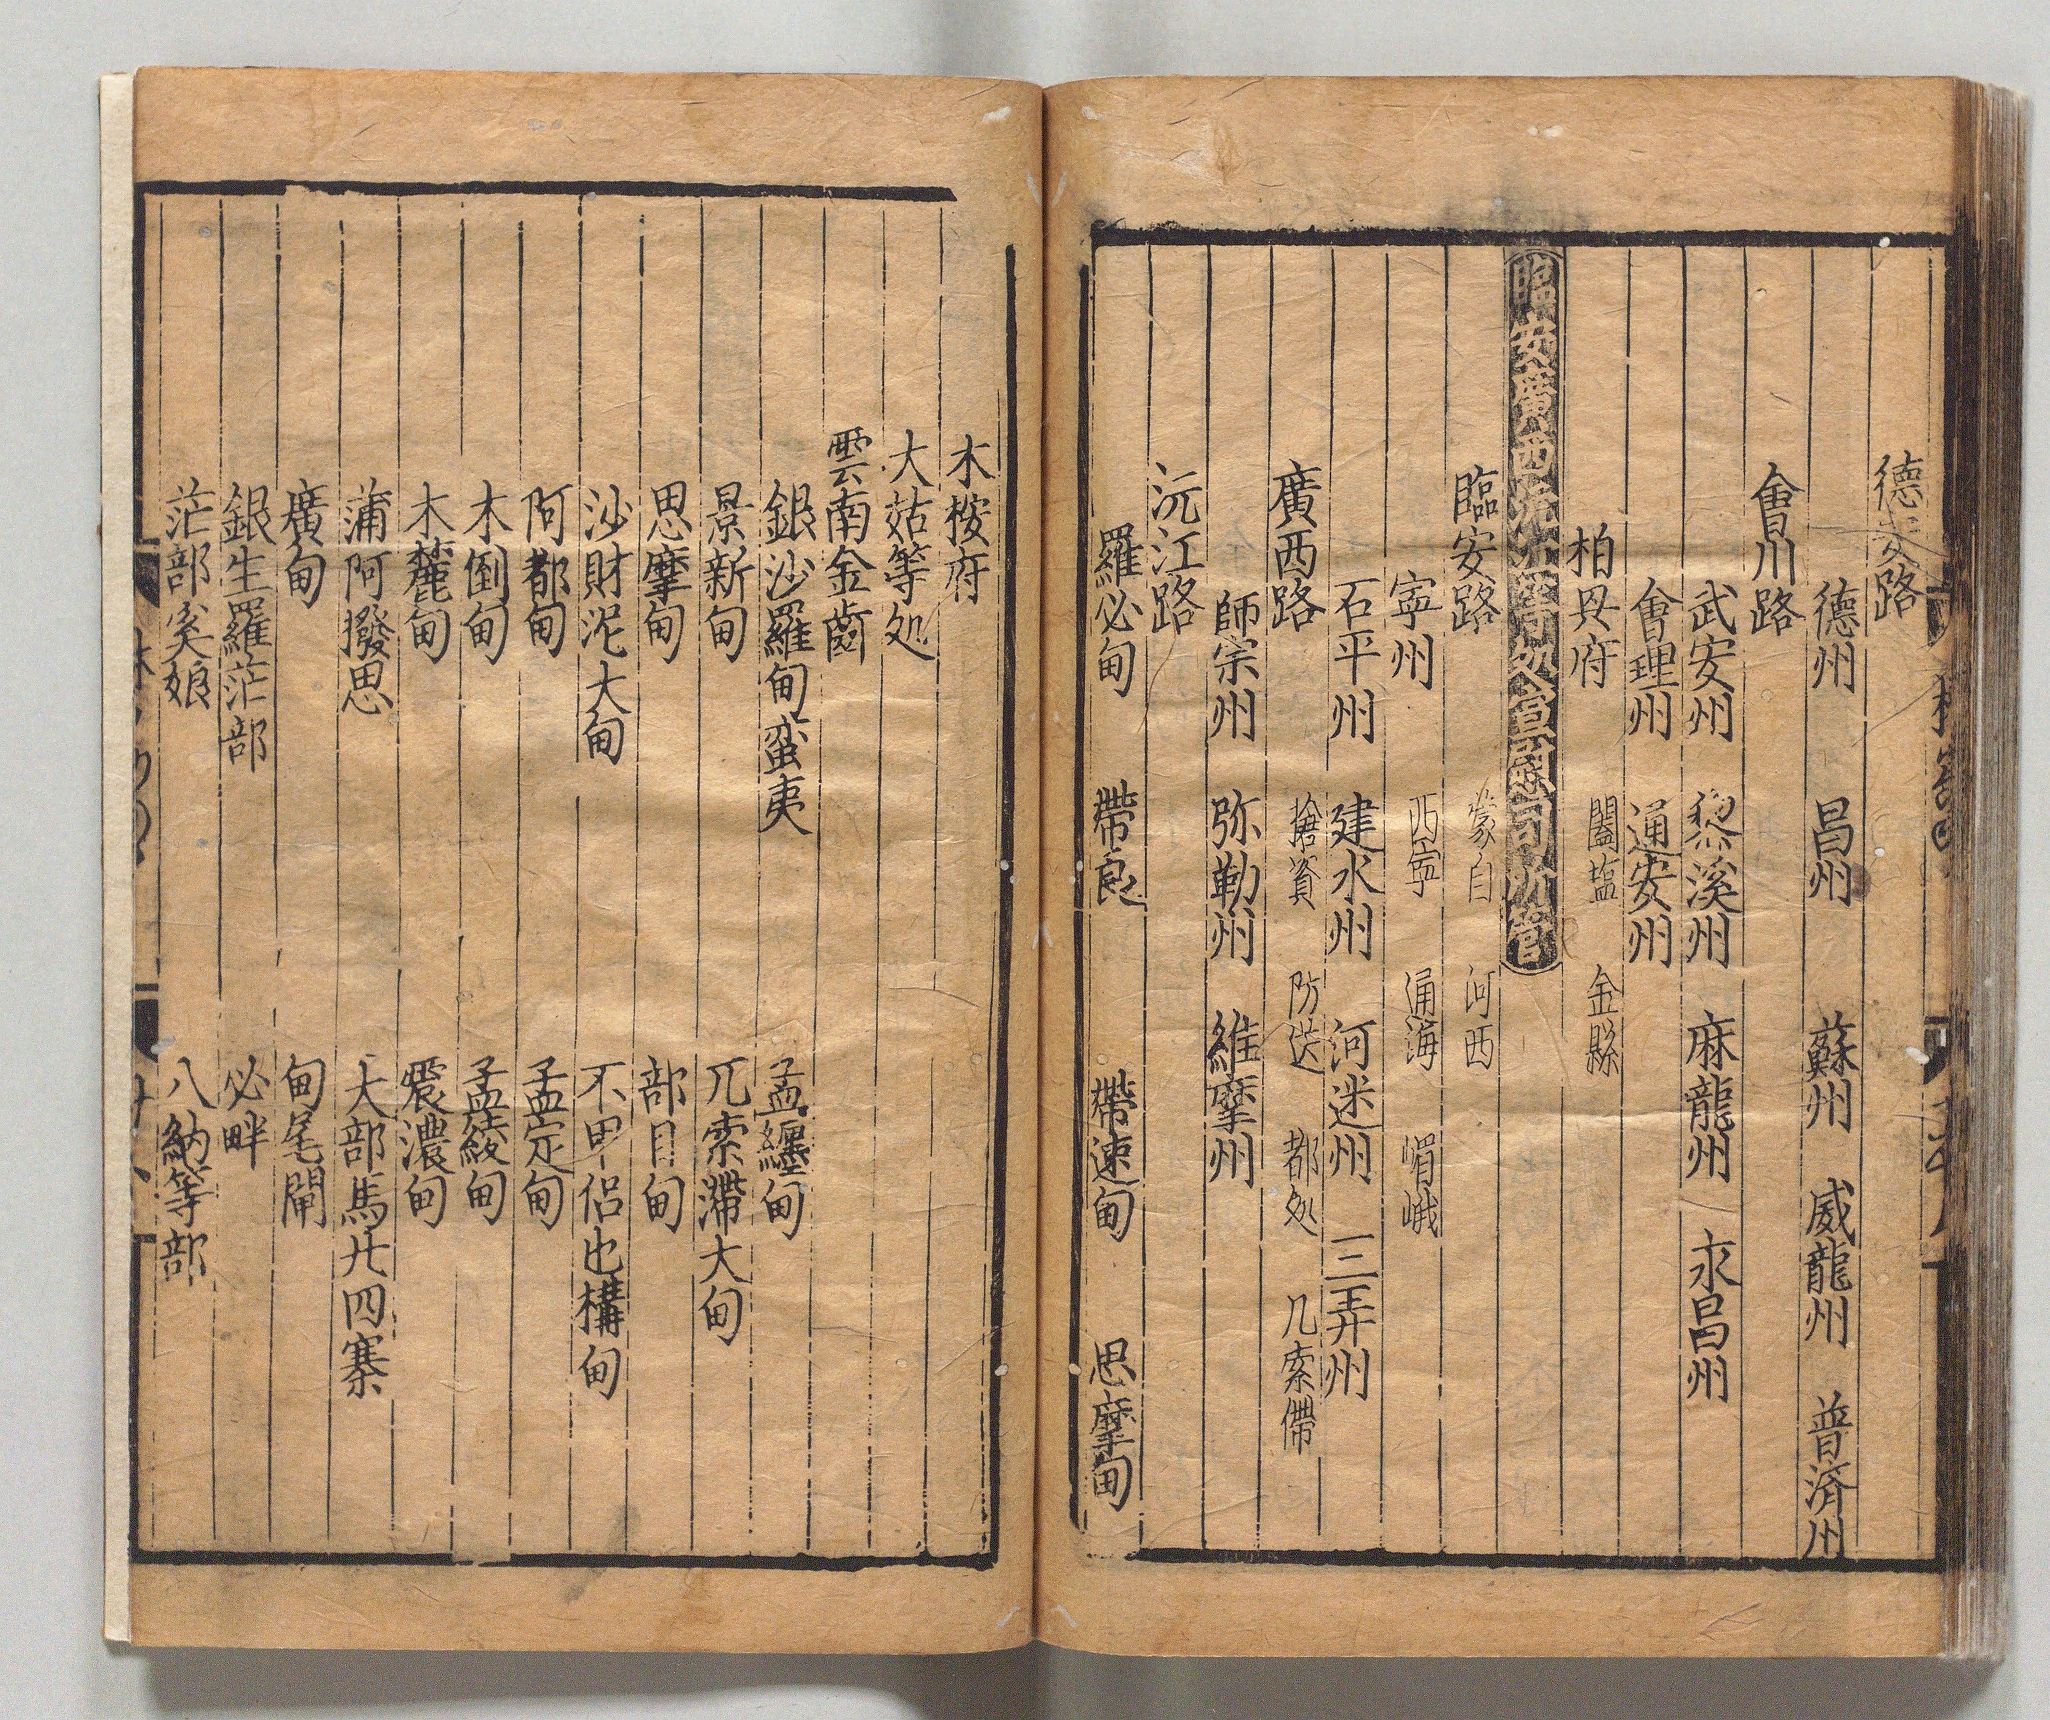 德安路
德州 昌州 蘇州 威龍州 普濟州
會川路
武安州 黎溪州 麻龍州 永昌州
會理州 通安州
柏興府 闔塩 金縣
臨安廣西元江等処宣慰司所管
臨安路 蒙自 河西
寕州 西寕 通海 嵋峨
石平州 建水州 河迷州 三弄州
廣西路 搶資 防送 都処 几索僀
師宗州 弥勒州 維摩州
沅江路
羅必甸 帶良 帶速甸 思摩甸
木按府
大菇等処
雲南金齒
銀沙羅甸蛮夷 孟纏甸
景新甸 兀索滯大甸
思摩甸 部目甸
沙財泥大甸 不甲侣也構甸
阿都甸 孟定甸
木倒甸 孟綾甸
木麓甸 震濃甸
蒲阿撥思 大部馬廾四寨
廣甸 甸尾閘
銀生羅茫部 必畔
茫部奚娘 八納等部